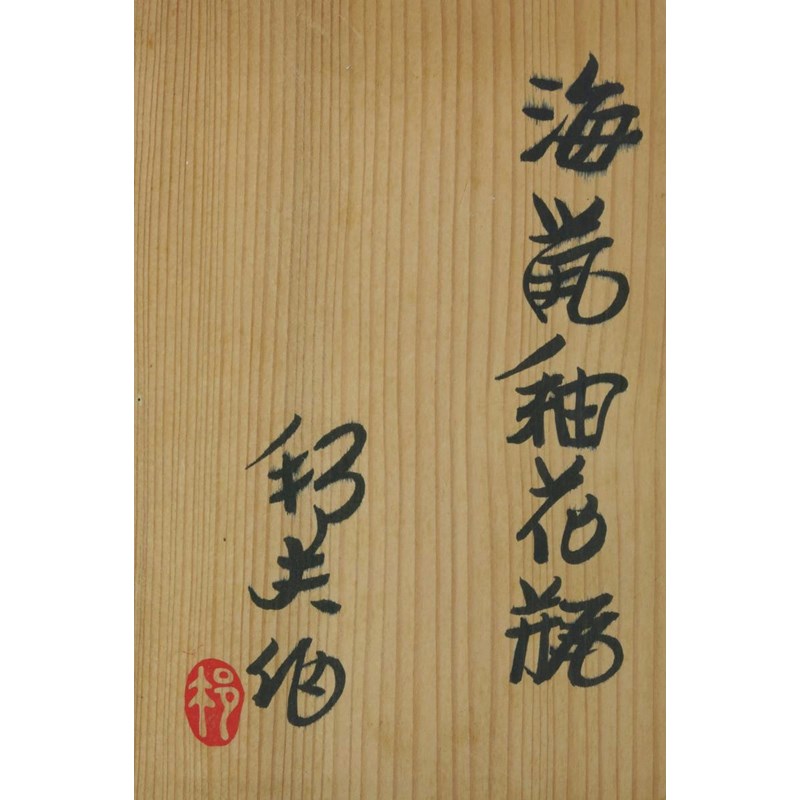 海鼠釉花瓶
邦夫作